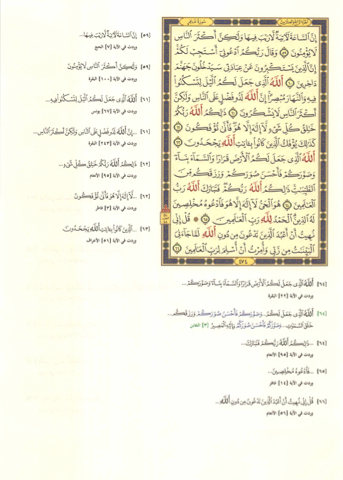 إِنَّ ٱلسَّاعَةَ لَآتِيَةٌ لَّا رَيْبَ فِيهَا وَلَٰكِنَّ أَكْثَرَ ٱلنَّاسِ
لَا يُؤْمِنُونَ ٥٩ وَقَالَ رَبُّكُمُ ٱدْعُونِيٓ أَسْتَجِبْ لَكُمْ
إِنَّ ٱلَّذِينَ يَسْتَكْبِرُونَ عَنْ عِبَادَتِي سَيَدْخُلُونَ جَهَنَّمَ
دَاخِرِينَ ٦٠ ٱللَّهُ ٱلَّذِي جَعَلَ لَكُمُ ٱلَّيْلَ لِتَسْكُنُوا۟
فِيهِ وَٱلنَّهَارَ مُبْصِرًا إِنَّ ٱللَّهَ لَذُو فَضْلٍ عَلَى ٱلنَّاسِ وَلَٰكِنَّ
أَكْثَرَ ٱلنَّاسِ لَا يَشْكُرُونَ ٦١ ذَٰلِكُمُ ٱللَّهُ رَبُّكُمْ
خَٰلِقُ كُلِّ شَيْءٍ لَّآ إِلَٰهَ إِلَّا هُوَ فَأَنَّىٰ تُؤْفَكُونَ ٦٢
كَذَٰلِكَ يُؤْفَكُ ٱلَّذِينَ كَانُوا۟ بِـَٔايَٰتِ ٱللَّهِ يَجْحَدُونَ ٦٣
ٱللَّهُ ٱلَّذِي جَعَلَ لَكُمُ ٱلْأَرْضَ قَرَارًا وَٱلسَّمَآءَ بِنَآءً
وَصَوَّرَكُمْ فَأَحْسَنَ صُوَرَكُمْ وَرَزَقَكُم مِّنَ
ٱلطَّيِّبَٰتِ ذَٰلِكُمُ ٱللَّهُ رَبُّكُمْ فَتَبَارَكَ ٱللَّهُ رَبُّ
ٱلْعَٰلَمِينَ ٦٤ هُوَ ٱلْحَيُّ لَآ إِلَٰهَ إِلَّا هُوَ فَٱدْعُوهُ مُخْلِصِينَ
لَهُ ٱلدِّينَ ٱلْحَمْدُ لِلَّهِ رَبِّ ٱلْعَٰلَمِينَ ٦٥ قُلْ إِنِّي
نُهِيتُ أَنْ أَعْبُدَ ٱلَّذِينَ تَدْعُونَ مِن دُونِ ٱللَّهِ لَمَّا جَآءَنِيَ
ٱلْبَيِّنَٰتُ مِن رَّبِّي وَأُمِرْتُ أَنْ أُسْلِمَ لِرَبِّ ٱلْعَٰلَمِينَ ٦٦
٤٧٤
[٥٩] إِنَّ ٱلسَّاعَةَ لَآتِيَةٌ لَّا رَيْبَ فِيهَا...
وردت في الآية [٧] الحج
[٥٩] وَلَٰكِنَّ أَكْثَرَ ٱلنَّاسِ لَا يُؤْمِنُونَ
[٦١] ٱللَّهُ ٱلَّذِي جَعَلَ لَكُمُ ٱلَّيْلَ لِتَسْكُنُوا۟ فِيهِ...
وردت في الآية [٦٧] يونس
[٦١] ...إِنَّ ٱللَّهَ لَذُو فَضْلٍ عَلَى ٱلنَّاسِ وَلَٰكِنَّ أَكْثَرَ ٱلنَّاسِ...
وردت في الآية [٢٤٣] البقرة
[٦٢] ذَٰلِكُمُ ٱللَّهُ رَبُّكُمْ خَٰلِقُ كُلِّ شَيْءٍ...
[٦٢] ...لَآ إِلَٰهَ إِلَّا هُوَ فَأَنَّىٰ تُؤْفَكُونَ
وردت في الآية [٣] فاطر
[٦٣] ...ٱلَّذِينَ كَانُوا۟ بِـَٔايَٰتِ ٱللَّهِ يَجْحَدُونَ
وردت في الآية [٥١] الأعراف
[٦٤] ٱللَّهُ ٱلَّذِي جَعَلَ لَكُمُ ٱلْأَرْضَ قَرَارًا وَٱلسَّمَآءَ بِنَآءً وَصَوَّرَكُمْ...
وردت في الآية [٢٢] البقرة
[٦٤] ٱللَّهُ ٱلَّذِي جَعَلَ لَكُمُ... وَصَوَّرَكُمْ فَأَحْسَنَ صُوَرَكُمْ وَرَزَقَكُم...
خَلَقَ ٱلسَّمَٰوَٰتِ... وَصَوَّرَكُمْ فَأَحْسَنَ صُوَرَكُمْ وَإِلَيْهِ ٱلْمَصِيرُ [٣] التغابن
[٦٤] ...ذَٰلِكُمُ ٱللَّهُ رَبُّكُمْ فَتَبَارَكَ...
[٦٥] ...فَٱدْعُوهُ مُخْلِصِينَ...
وردت في الآية [١٤] غافر
[٦٦] قُلْ إِنِّي نُهِيتُ أَنْ أَعْبُدَ ٱلَّذِينَ تَدْعُونَ مِن دُونِ ٱللَّهِ...
وردت في الآية [٥٦] الأنعام